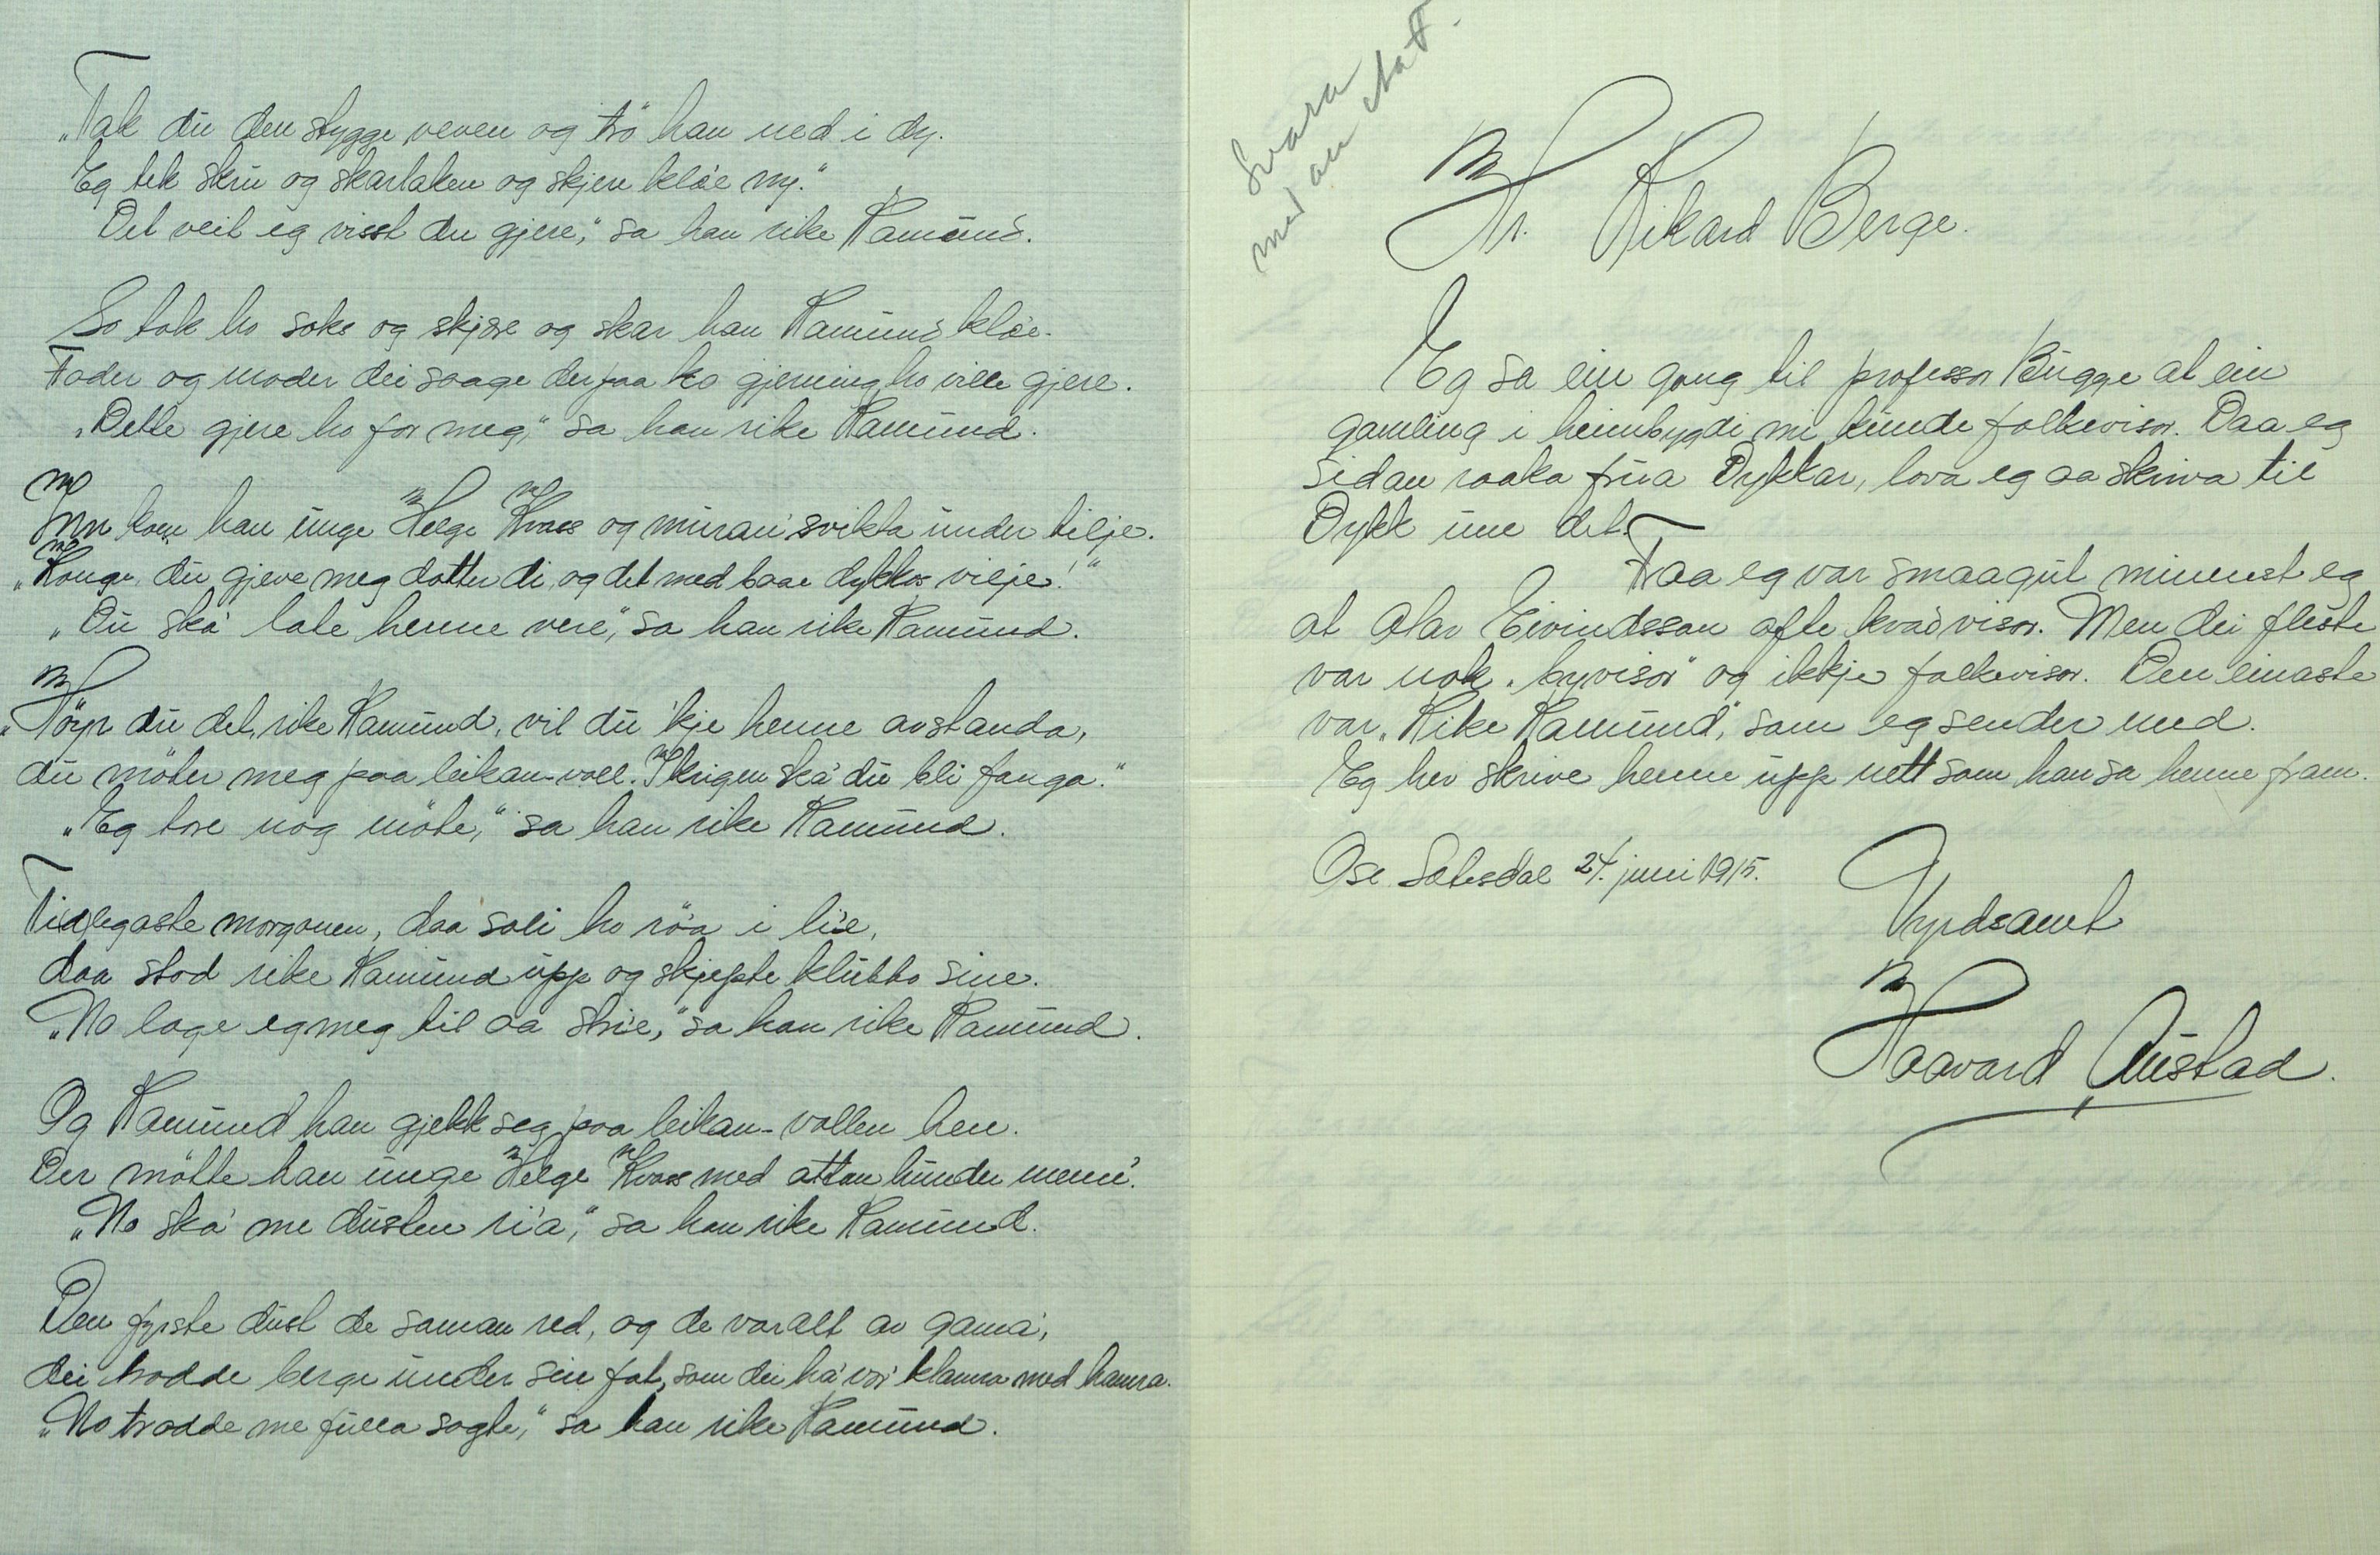 „Tak du den stygge veven og trø han ned i dy.
Eg tek skru og skarlaken og skjere klæe ny."
Det veit eg visst du gjere," sa han rike Ramund.
So tok ho soks og skjere og skar han Ramund klæe.
Fader og moder dei saage der paa ko gjerning ho ville gjere.
„Dette gjere ho for meg," sa han rike Ramund.
Inn kom han unge Helge Kvass og muran' svikta under tilje.
„Konge, du gjeve meg dotter di, og det med baae dykkos vilje!"
„Du ska' late henne vere," sa han rike Ramund.
„Höyr du det, rike Ramund, vil du 'kje henne avstanda,
du möter meg paa leikan-voll. I krigen ska' du bli fanga."
„Eg tore nog möte," sa han rike Ramund.
Tidlegaste morgonen, daa soli ho rö'a i li'e,
daa stod rike Ramund upp og skjepte klubbo sine.
„No lage eg meg til aa stri'e," sa han rike Ramund.
Og Ramund han gjekk seg paa leikan-vollen hen.
Der mötte han unge Helge Kvass med attan hunder menn'.
„No ska' me dusten ri'a," sa han rike Ramund.
Den fyrste dust de saman red, og de var alt av gama',
dei trodde berge under sin fot, som dei ha' vor' klamra med hamra.
„No trodde me fulla sagte," sa han rike Ramund.
Svara
med an
Hr. Rikard Berge.
Eg sa ein gong til professor Bugge at ein
gamling i heimbygdi mi kunde folkevisor. Daa eg
sidan raaka frua Dykkar, lova eg aa skriva til
Dykk um det.
Daa eg var smaagut minnest eg
at Olav Eivindsson ofte kvad visor. Men dei fleste
var nok „byvisor" og ikkje folkevisor. Den einaste
var „Rike Ramund," som eg sender med.
Eg hev skrive henne upp nett som han sa henne fram.
Ose Setesdal 24. juni 1915.
Vyrdsamt
Haavard Austad.